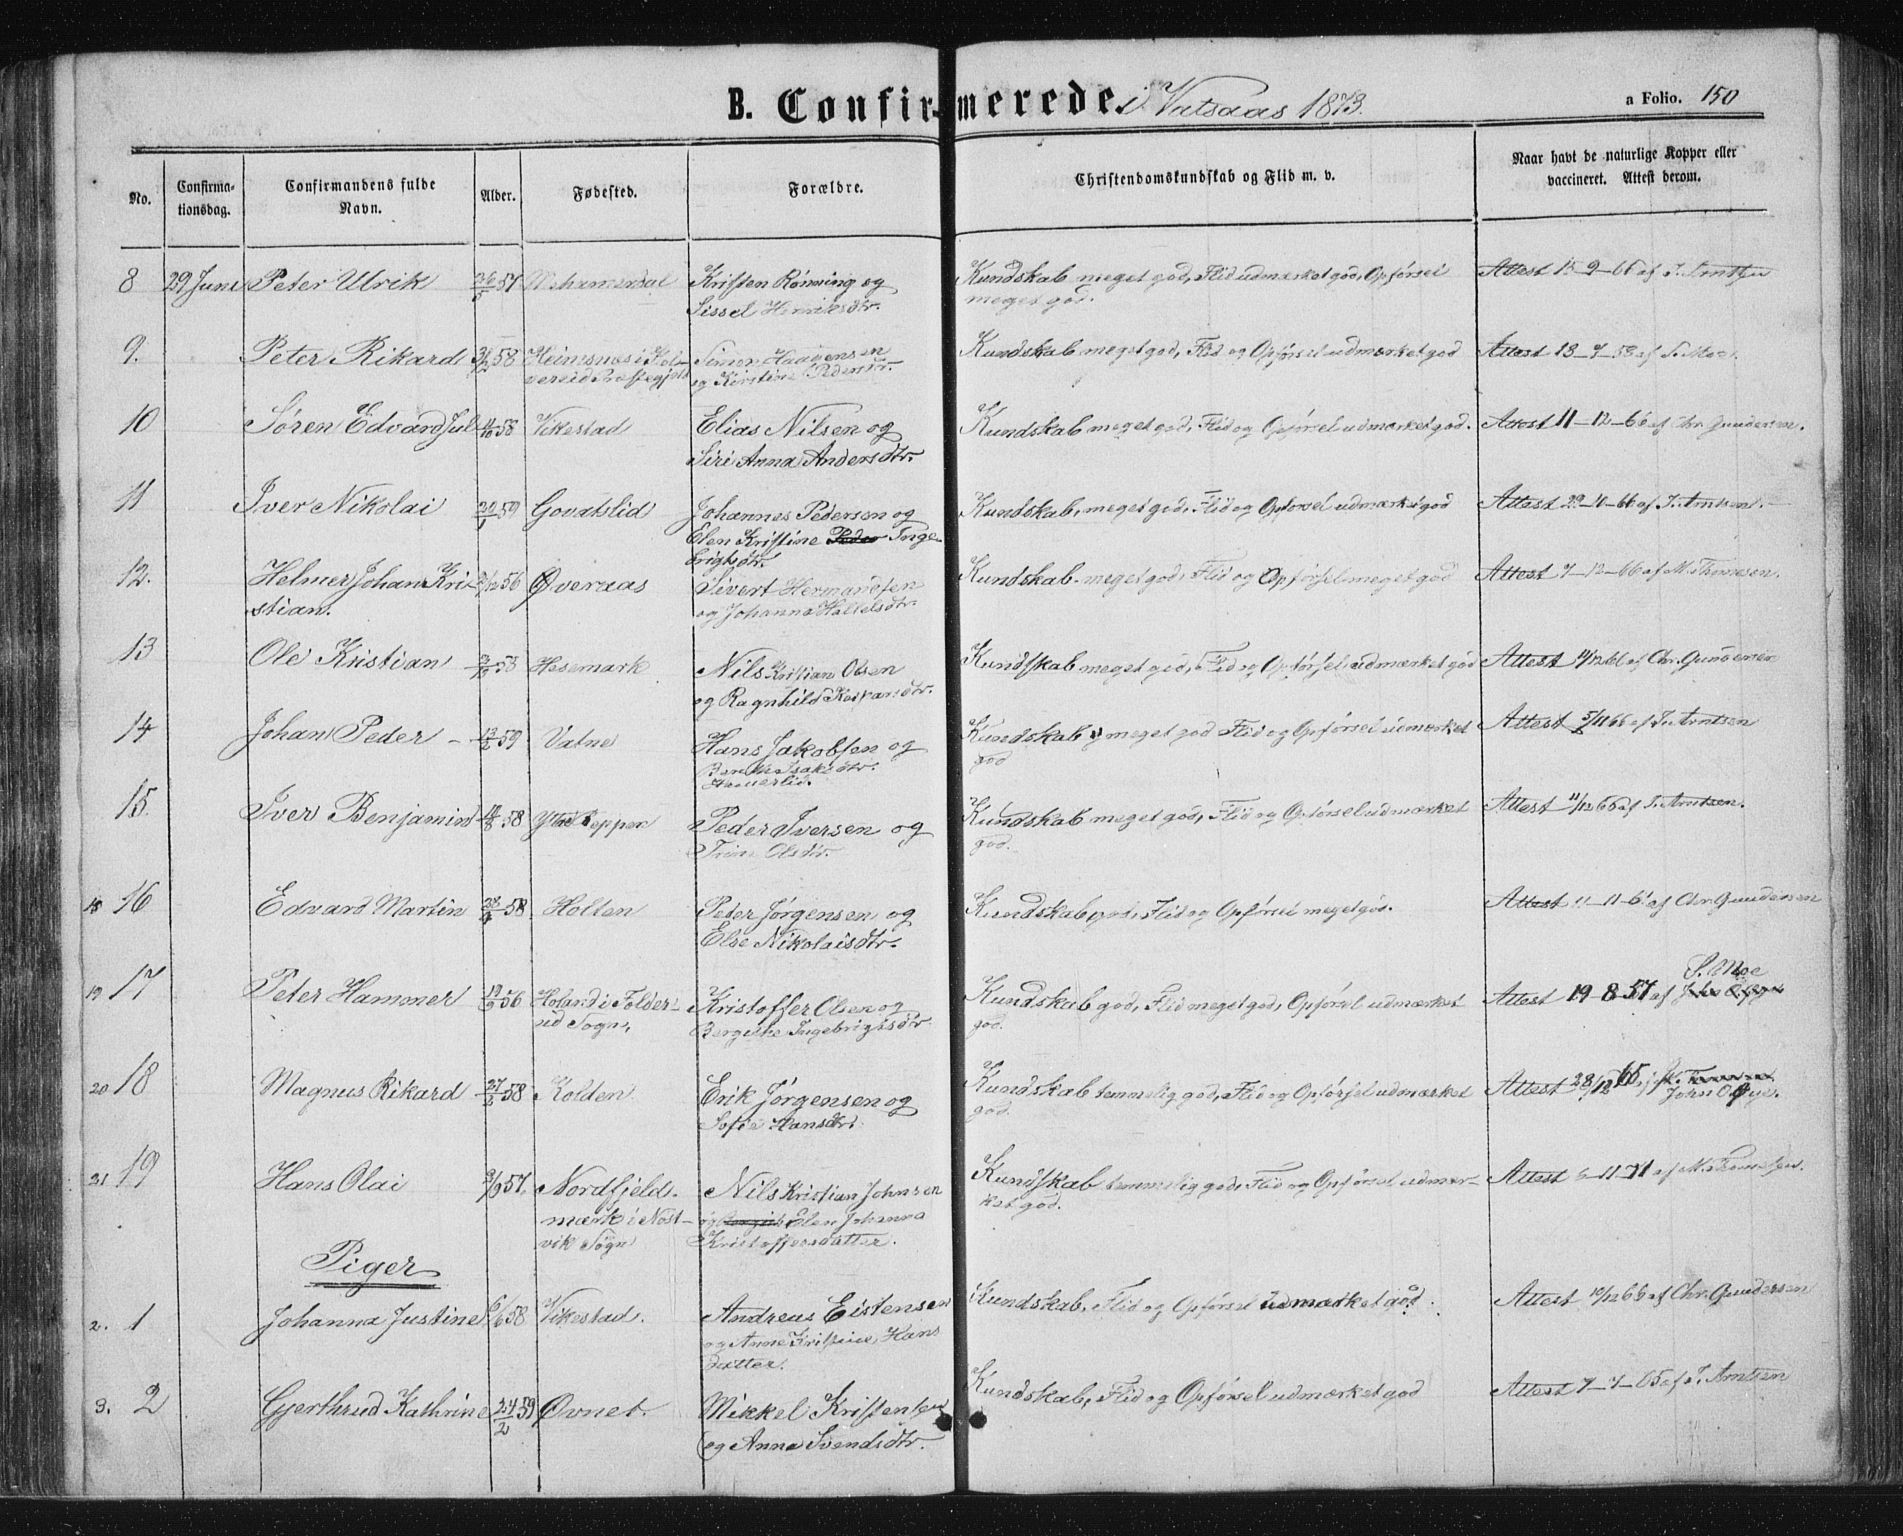 B. Confirmerede. i Vatsaas 1873.
a Folio. 150
No.
Confirmationsdag.
Confirmandens fulde Navn.
Alder.
Fødested.
Forældre.
Christendomskundskab og Flid m. v.
Naar havt de naturlige Kopper eller vaccineret. Attest derom.
8 29 Juni Peter Ulrik 26/5 57 Kristen Rønning og Kundskab meget god, Flid udmærket god, Opførsel Attest 15-9-66 af J. Arntsen
Sissel Henriksdtr. meget god.
9. Peter Rikard 58 Heimsnæs i Kol- Simon Haagensen Kundskab meget god, Flid og Opførsel udmærket god Attest 13-7-58 af S. Moe.
vereid Præstegjeld og Kirstine Pedersdtr.
10 Søren Edvard Jul 11/10 58 Vikestad Elias Nilsen og Kundskab meget god, Flid og Opførsel udmærket god. Attest 11-12-66 af Chr. Gundersen.
Siri Anna Andersdtr.
11 Iver Nikolai 20/1 59 Govatslid Johannes Pedersen og Kundskab, meget god, Flid og Opførsel udmærket god Attest 29-10-66 af J. Arntsen.
Elen Kristine Peder Inge-
brigtsdtr.
12. Helmer Johan Kri- 56 Øveraas Sivert Hermandsen Kundskab meget god, Flid og Opførsel meget god Attest 7-12-66 af M. Thomesen.
stian. og Johanna Hallelsdtr.
13 Ole Kristian 58 Hesemark Nils Kristian Olsen Kundskab meget god, Flid og Opførsel udmærket god Attest 11/12 66 af Chr. Gundersen
og Ragnhild Kasparsdtr.
14 Johan Peder 13/2 59 Vatne Hans Jakobsen og Kundskab meget god Flid og Opførsel udmærket Attest 5/11 66 af J. Arntsen
Berethe Isaksdtr. god
15. Iver Benjamin 14/8 58 Ytre Lepper Peder Iversen og Kundskab meget god, Flid og Opførsel udmærket Attest 11/12 66 af J. Arntsen.
Trine Olsdtr. god.
18 16 Edvard Martin 28/4 58 Holten Peter Jørgensen og Kundskab god, Flid og Opførsel meget god. Attest 11-11-6 af Chr. Gundersen
Else Nikolaisdtr.
S. Moe
19 17 Peter Hammer 19/9 56 Høland i Folder- Kristoffer Olsen og Kundskab god, Flid meget god, Opførsel udmærket Attest 19-8-57 af
ud Sogn, Bergithe Ingebrigtsdtr. god.
20 18 Magnus Rikard 27/2 58 Kolden Erik Jørgensen og Kundskab temmelig god, Flid og Opførsel udmærket Attest 28/12 65,
Sofie Hansdtr. god. John Øye.
21 19 Hans Olai 9/9 57, Nordfjeld- Nils Kristian Johnsen Kundskab temmelig god, Flid og Opførsel udmær- Attest 6-11-71 af M. Thomesen.
mærk i Nost- og Elen Johanna ket god.
vik Sogn Kristoffersdatter.
Piger
2. 1 Johanna Justine 6/6 58 Vikestad. Andreas Eistensen Kundskab, Flid og Opførsel udmærket god. Attest 10/12 66 af Chr. Gundersen
og Anne Kristine Hans
datter.
3. 2 Gjerthrud Kathrine 24/2 59 Øvnet. Mikkel Kristensen Kundskab, Flid og Opførsel udmærket god Attest 7-7-65 af J. Arntsen
og Anna Svendsdtr.